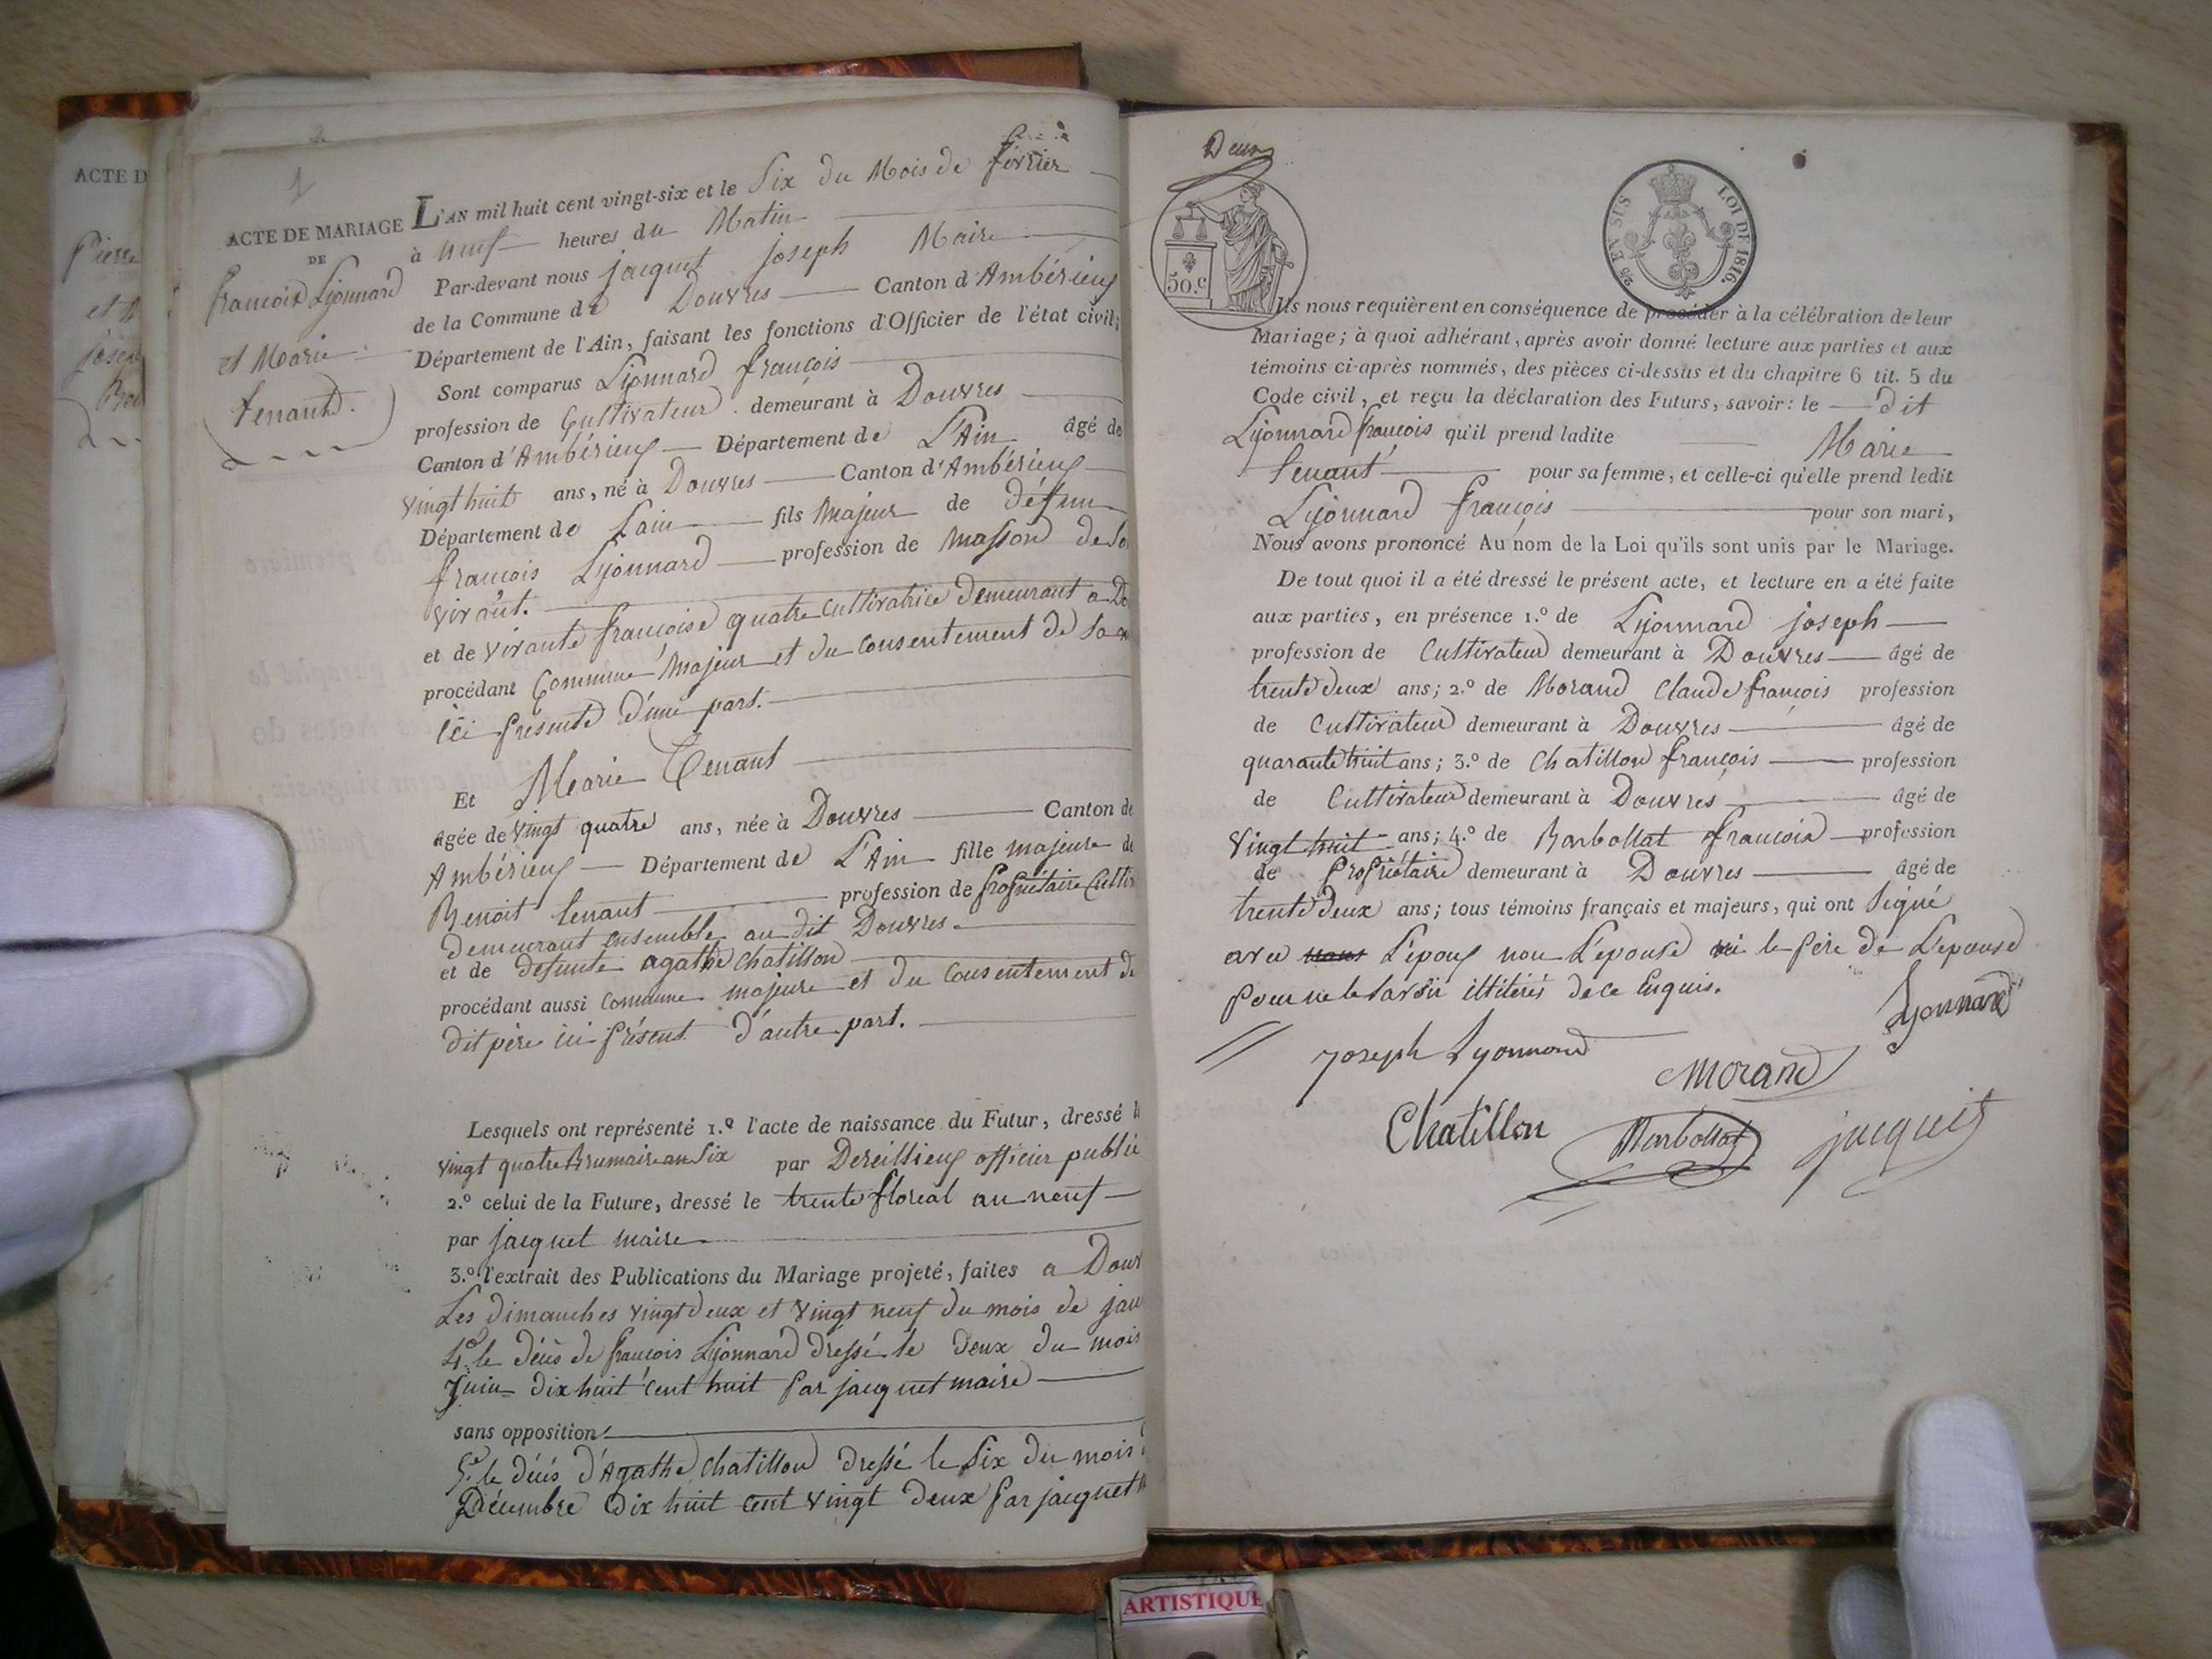 ACTE D
Pierre
et
1
ACTE DE MARIAGE
DE
françois Lyonnard
et Marie
tenant.
L'AN mil huit cent vingt-six et le Six du Mois de février
à neuf heures du Matin
Par-devant nous jacquet joseph Maire
de la Commune de Douvres Canton d'Ambérieux
Département de l'Ain, faisant les fonctions d'Officier de l'état civil;
Sont comparus Lyonnard françois
profession de Cultivateur demeurant à Douvres
Canton d'Ambérieux Département de L'Ain âgé de
vingt huit ans, né à Douvres Canton d'Ambérieux
Département de Lain fils Majeur de défun
françois Lyonnard profession de Masson de So
vivant.
et de vivante françoise quatre Cultivatrice demeurant a Do
procédant Comme Majeur et du Consentement de Sa
ici présente d'une part.
Et Marie Tenant
agée de vingt quatre ans, née à Douvres Canton de
Ambérieux Département de L'Ain fille majeure de
Benoit tenant profession de propriétaire Cultiv
demeurant ensemble au dit Douvres.
et de defunte agathe Chatillon
procédant aussi Comme majeure et du Consentement de
dit père ici présent d'autre part.
Lesquels ont représenté 1.º l'acte de naissance du Futur, dressé l
vingt quatre Brumaire an Six par Dereillieux officier public
2.º celui de la Future, dressé le trente floréal an neuf
par jacquet maire
3.º l'extrait des Publications du Mariage projeté, faites a Douv
Les dimanches vingt deux et vingt neuf du mois de jan
4º le décès de françois Lyonnard dressé le deux du mois
Juin dix huit cent huit par jacquet maire
sans opposition
5º le décès d'Agathe Chatillon dressé le Six du mois d
Décembre dix huit cent vingt deux par jacquet m
Deux
50.c
25 EN SUS LOI DE 1816.
Ils nous requièrent en conséquence de procéder à la célébration de leur
Mariage; à quoi adhérant, après avoir donné lecture aux parties et aux
témoins ci-après nommés, des pièces ci-dessus et du chapitre 6 tit. 5 du
Code civil, et reçu la déclaration des Futurs, savoir: le dit
Lyonnard françois qu'il prend ladite Marie
tenant pour sa femme, et celle-ci qu'elle prend ledit
Lyonnard françois pour son mari,
Nous avons prononcé Au nom de la Loi qu'ils sont unis par le Mariage.
De tout quoi il a été dressé le présent acte, et lecture en a été faite
aux parties, en présence 1.º de Lyonnard joseph
profession de Cultivateur demeurant à Douvres âgé de
trente deux ans; 2.º de Morand Claude françois profession
de Cultivateur demeurant à Douvres âgé de
quarante huit ans; 3.º de Chatillon françois profession
de Cultivateur demeurant à Douvres âgé de
vingt huit ans; 4.º de Barbollat françois profession
de Propriétaire demeurant à Douvres âgé de
trente deux ans; tous témoins français et majeurs, qui ont Signé
avec nous L'époux non L'épouse ni le père de L'épouse
pour ne le Savoir illitérés de ce Enquis.
Lyonnard
joseph Lyonnard
Morand
Chatillon
Barbollat
jacquet
ARTISTIQUE